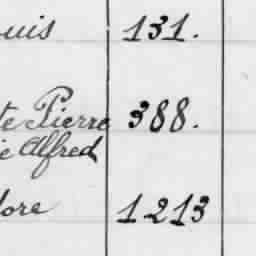 uis 131.
te Pierre 388.
ie Alfred
dore 1213